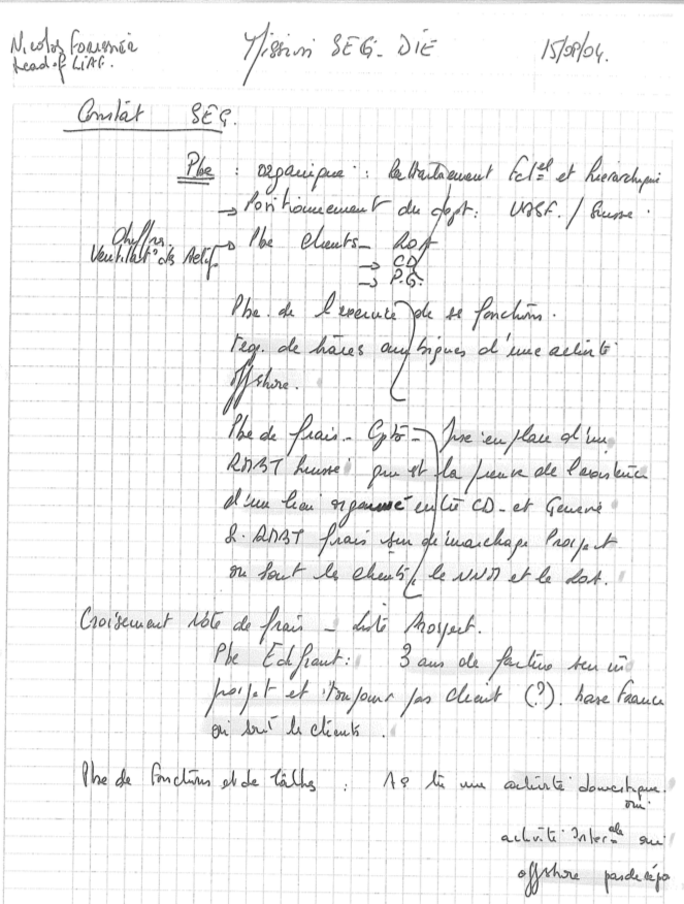 Nicolas Forissier Mission SEG - DIE 15/09/04.
Head of LIAF.
Constât SEG.
Pbe : organique : Rattachement Fctel et hierarchique
→ Positionnement du dept : UBSF. / Suisse.
Chiffres → Pbe clients -
Ventilat° des Actifs → CD
→ P.G.
Pbe. de l'exercice de se fonctions.
req. de tâches ambigues d'une activité
offshore.
Pbe de frais - Cpta - en place d'un
RMBT Suisse qui est la preuve de l'existence
d'un lien organisé entre CD - et Geneve
&. RMBT frais sur démarchage Prospect
ou sont les clients, le NNM et le
Croisement Note de frais - Liste Prospect.
Pbe : 3 ans de sur un
projet et toujours pas client (?). base France
où sont le clients.
Pbe de fonctions et de tâches : as tu une activité domestique. oui
activité Interale oui
offshore pas de